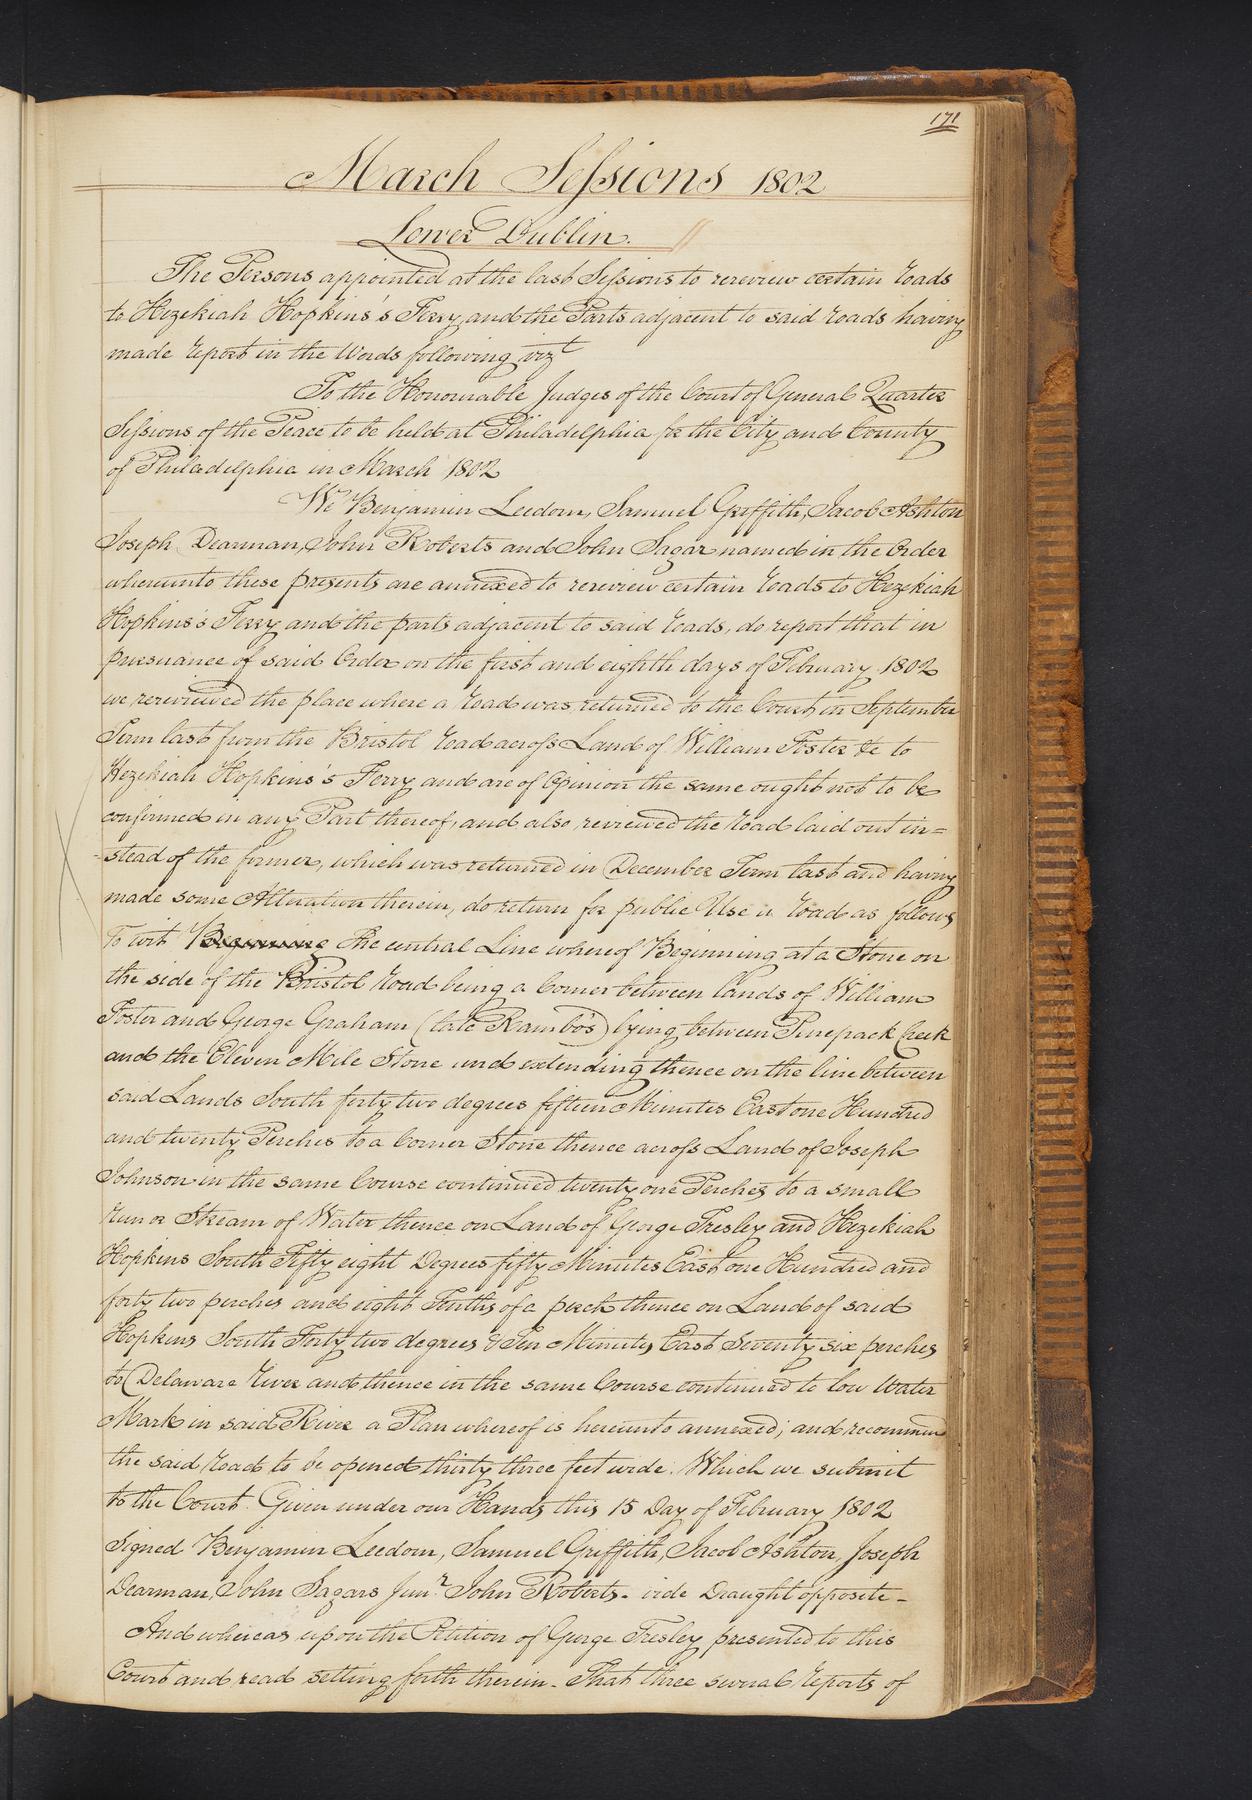 171
March Sessions 1802
Lower Dublin.
The Persons appointed at the last Sessions to rereview certain roads
to Hezekiah Hopkins's Ferry and the Parts adjacent to said roads having
made report in the Words following vizt
To the Honourable Judges of the Court of General Quarter
Sessions of the Peace to be held at Philadelphia for the City and County
of Philadelphia in March 1802
We Benjamin Leedom, Samuel Griffith, Jacob Ashton
Joseph Dearman, John Roberts and John Sagar named in the Order
whereunto these presents are annexed to rereview certain roads to Hezekiah
Hopkins's Ferry and the parts adjacent to said roads, do report that in
pursuance of said Order on the first and eighth days of February 1802
we rereviewed the place where a road was returned to the Court in September
Term last from the Bristol road across Land of William Foster &c to
Hezekiah Hopkins's Ferry and are of Opinion the same ought not to be
confirmed in any Part thereof, and also reviewed the road laid out in=
=stead of the former, which was returned in December Term last and having
made some Alteration therein, do return for public Use a road as follows
To wit Beginning The central Line whereof Beginning at a Stone on
the side of the Bristol road being a Corner between lands of William
Foster and George Graham (late Rambo's) lying between Pinepack Creek
and the Eleven Mile Stone and extending thence on the line between
said Lands South forty two degrees fifteen Minutes East one Hundred
and twenty Perches to a Corner Stone thence across Land of Joseph
Johnson in the same Course continued twenty one Perches to a small
run or Stream of Water thence on Land of George Tresley and Hezekiah
Hopkins South Fifty eight Degrees fifty Minutes East one Hundred and
forty two perches and eight Tenths of a perch thence on Land of said
Hopkins South Forty two degrees & Ten Minutes East Seventy six perches
to Delaware River and thence in the same Course continued to low Water
Mark in said River a Plan whereof is hereunto annexed; and recommend
the said road to be opened thirty three feet wide. Which we submit
to the Court. Given under our Hands this 15 Day of February 1802
Signed Benjamin Leedom, Samuel Griffith, Jacob Ashton, Joseph
Dearman, John Sagars Junr John Roberts - vide Draught opposite -
And whereas upon the Petition of George Tresley presented to this
Court and read setting forth therein - That three several reports of